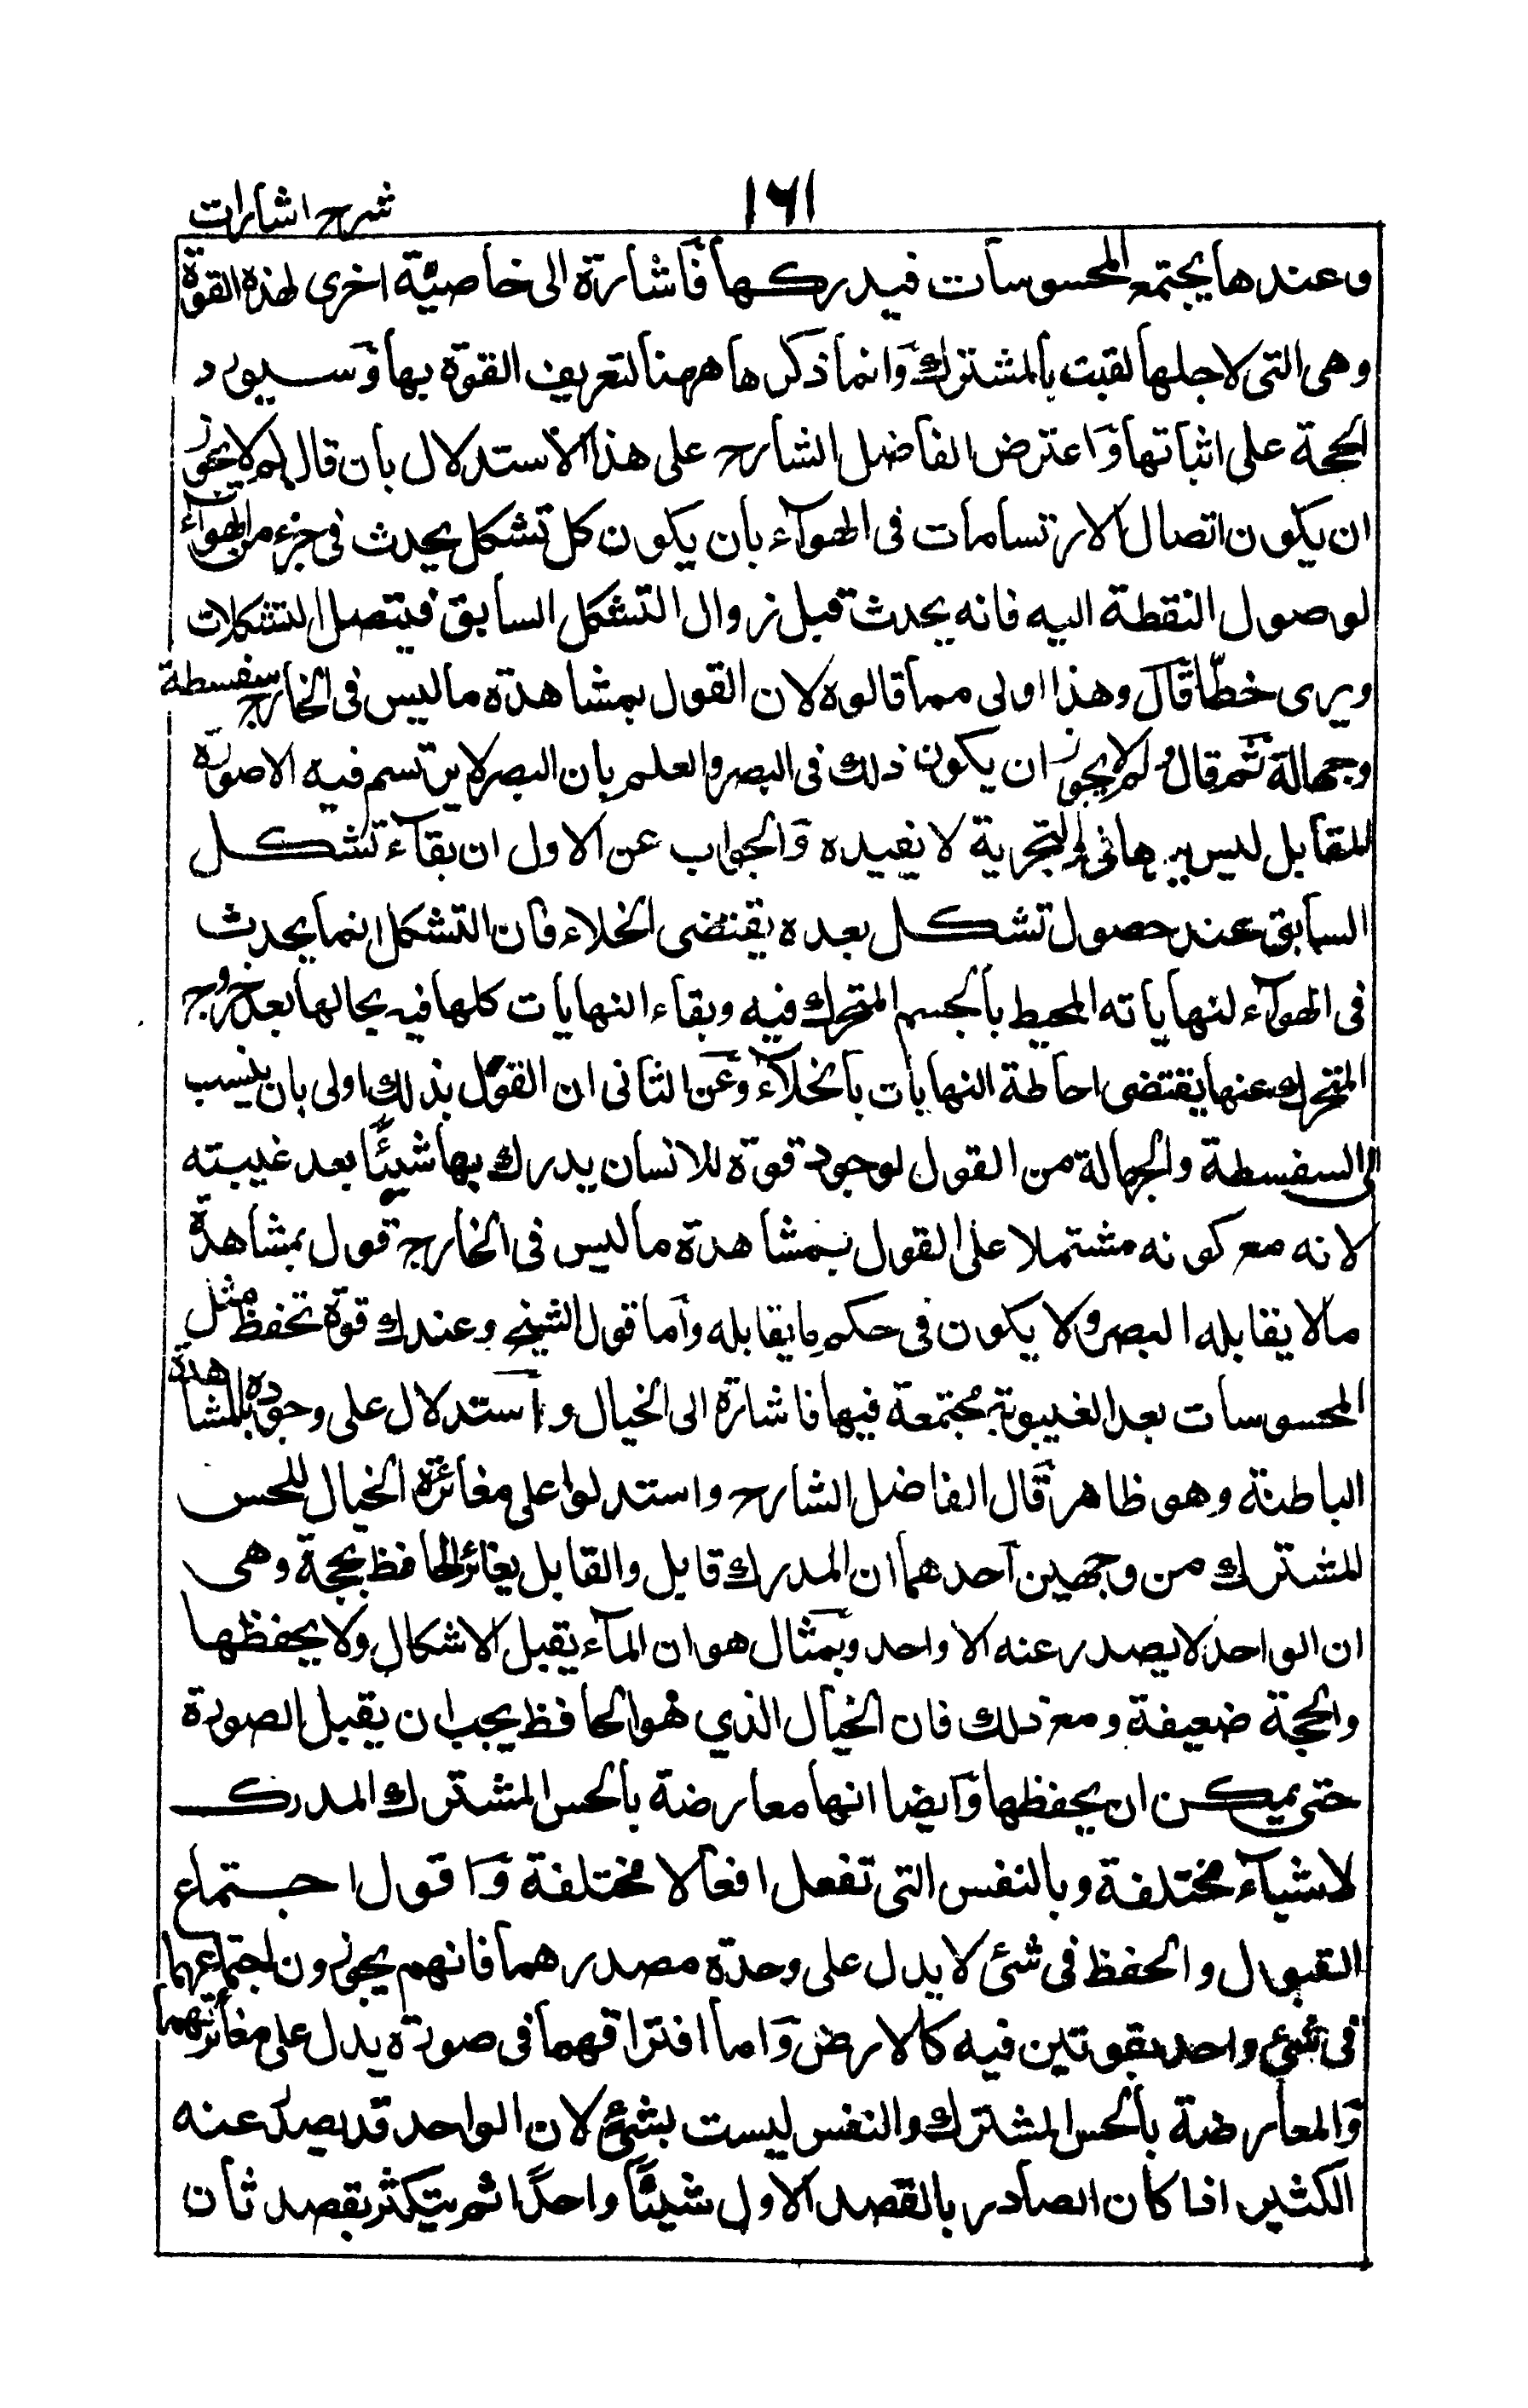 شرح اشارات
١٦١
وعندها يجتمع المحسوسات فيدركها فاشارة الى خاصيّة اخرى لهذه القوة
وهى التى لاجلها لقبت بالمشترك وانما ذكرها ههنا لتعريف القوة بها وسيورد
الحجة على اثباتها واعترض الفاضل الشارح على هذا الاستدلال بان قال لم لا يجوز
ان يكون اتصال الارتسامات فى الهوآء بان يكون كل تشكل يحدث فى جزء من الهوآء
لوصول النقطة اليه فانه يحدث قبل زوال التشكل السابق فيتصل التشكلات
ويرى خطّا قال وهذا اولى مما قالوه لان القول بمشاهدة ما ليس فى الخارج سفسطة
وجهالة ثم قال ولم لا يجوز ان يكون ذلك فى البصر والعلم بان البصر لا يرتسم فيه الا صورة
المقابل ليس ببرهانى والتجربة لا نفيده والجواب عن الاول ان بقآء تشكل
السابق عند حصول تشكل بعده يقتضى الخلاء فان التشكل انما يحدث
فى الهوآء لنهاياته المحيط بالجسم المتحرك فيه وبقاء النهايات كلها فيه بحالها بعد خروج
المتحرك عنها يقتضى احاطة النهايات بالخلآء وعن الثانى ان القول بذلك اولى بان ينسب
الى السفسطة والجهالة من القول لوجود قوة للانسان يدرك بها شيئًا بعد غيبته
لانه مع كونه مشتملا على القول بمشاهدة ما ليس فى الخارج قول بمشاهدة
مالا يقابله البصر ولا يكون فى حكم ما يقابله وأما قول الشيخ وعندك قوة تحفظ مثل
المحسوسات بعد الغيبوبة مجتمعة فيها فاشارة الى الخيال واستدلال على وجوده بالمشاهدة
الباطنة وهو ظاهر قال الفاضل الشارح واستدلوا على مغائرة الخيال للحس
المشترك من وجهين آحدهما ان المدرك قابل والقابل يغائر الحافظ بحجة وهى
ان الواحد لا يصدر عنه الا واحد وبمثال هو ان المآء يقبل الاشكال ولا يحفظها
والحجة ضعيفة ومع ذلك فان الخيال الذي هو الحافظ يجب ان يقبل الصورة
حتى يمكن ان يحفظها وآيضا انها معارضة بالحس المشترك المدرك
لاشيآء مختلفة وبالنفس التى تفعل افعالا مختلفة وآقول اجتماع
القبول والحفظ فى شئ لا يدل على وحدة مصدرهما فانهم يجوزون اجتماعهما
فى شئ واحد بقوتين فيه كالارض وآما افتراقهما فى صورة يدل على مغائرتهما
والمعارضة بالحس المشترك والنفس ليست بشئ لان الواحد قد يصدر عنه
الكثير اذا كان الصادر بالقصد الاول شيئًا واحدًا ثم يتكثر بقصد ثان